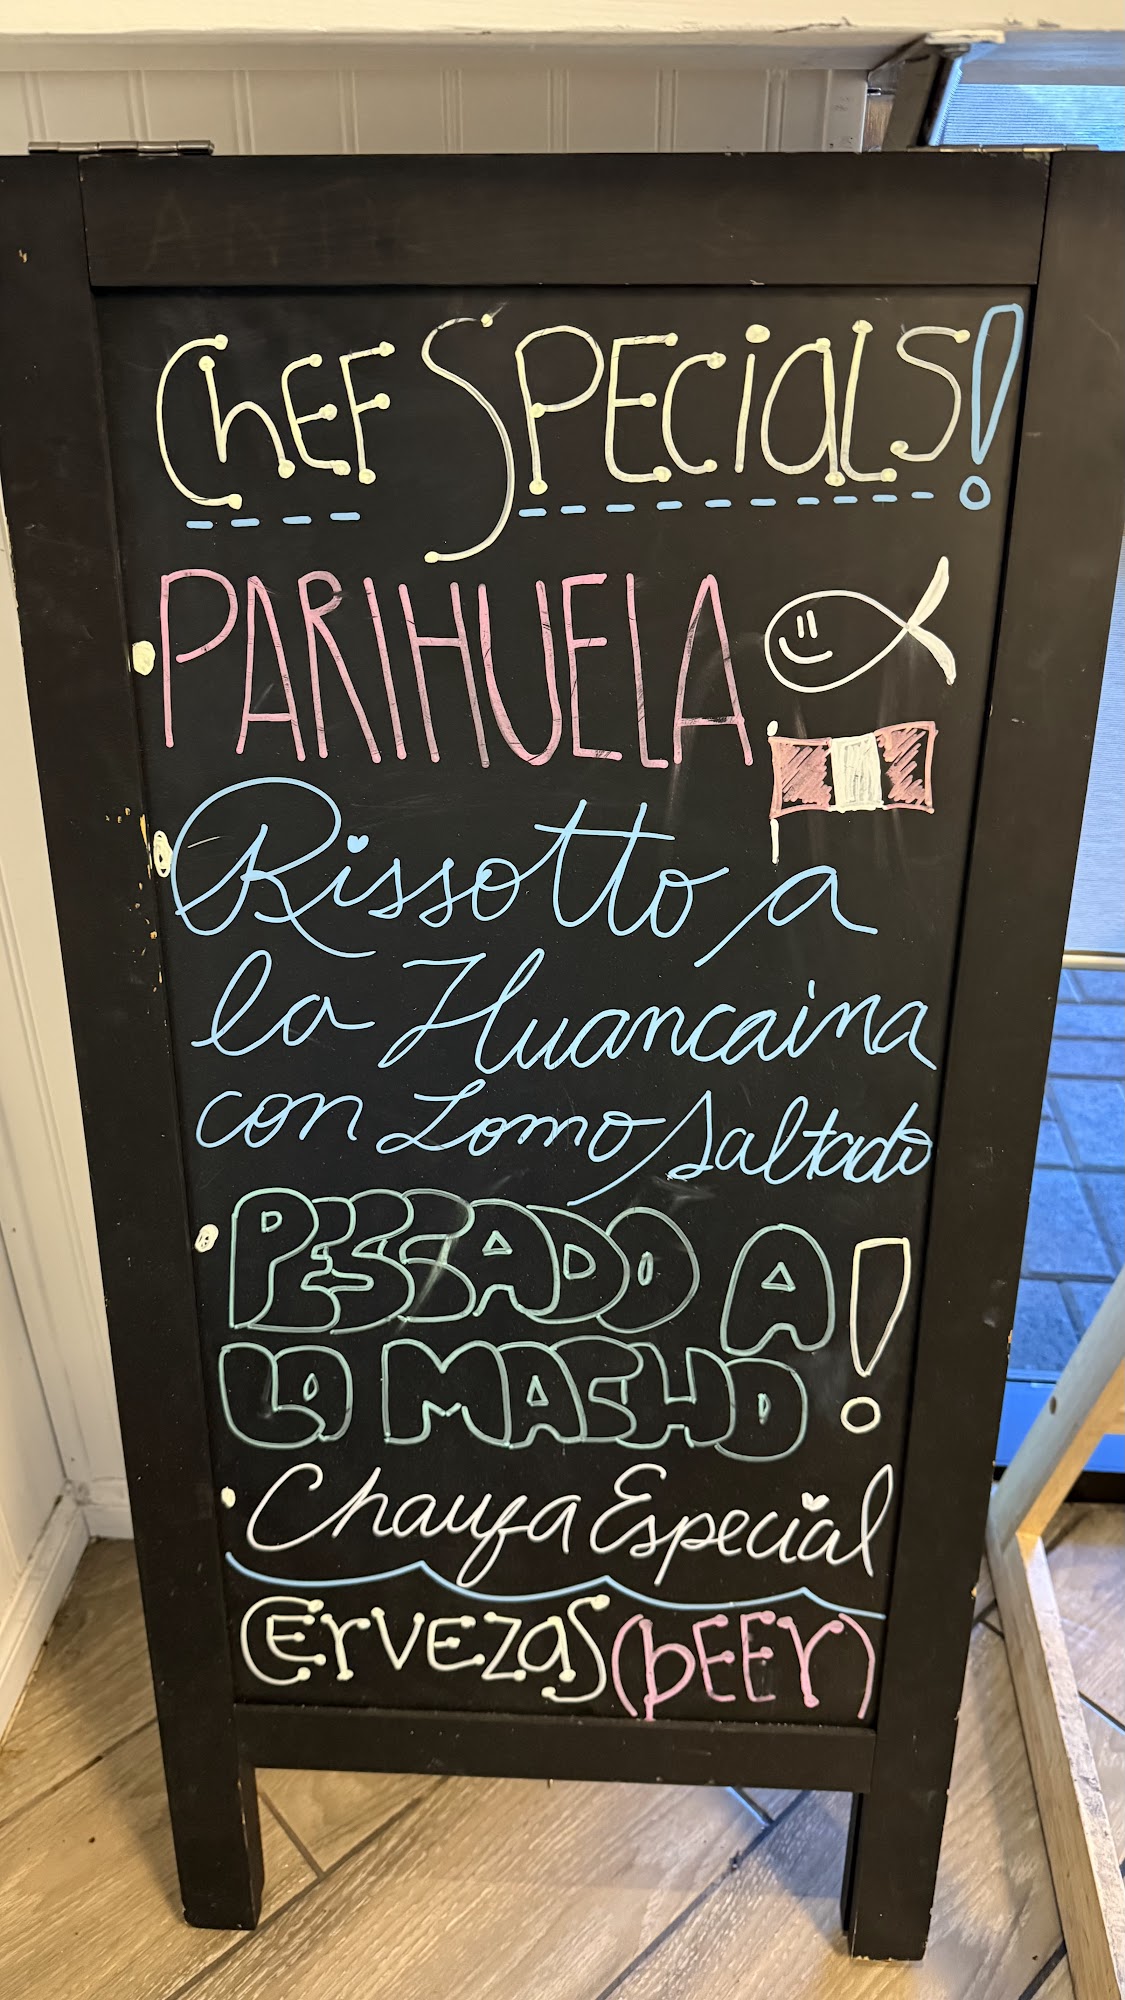 Chef Specials!
PARIHUELA
Rissotto a
la Huancaina
con Lomo Saltado
PESCADO A
LO MACHO!
Chaufa Especial
Cervezas (bEEr)